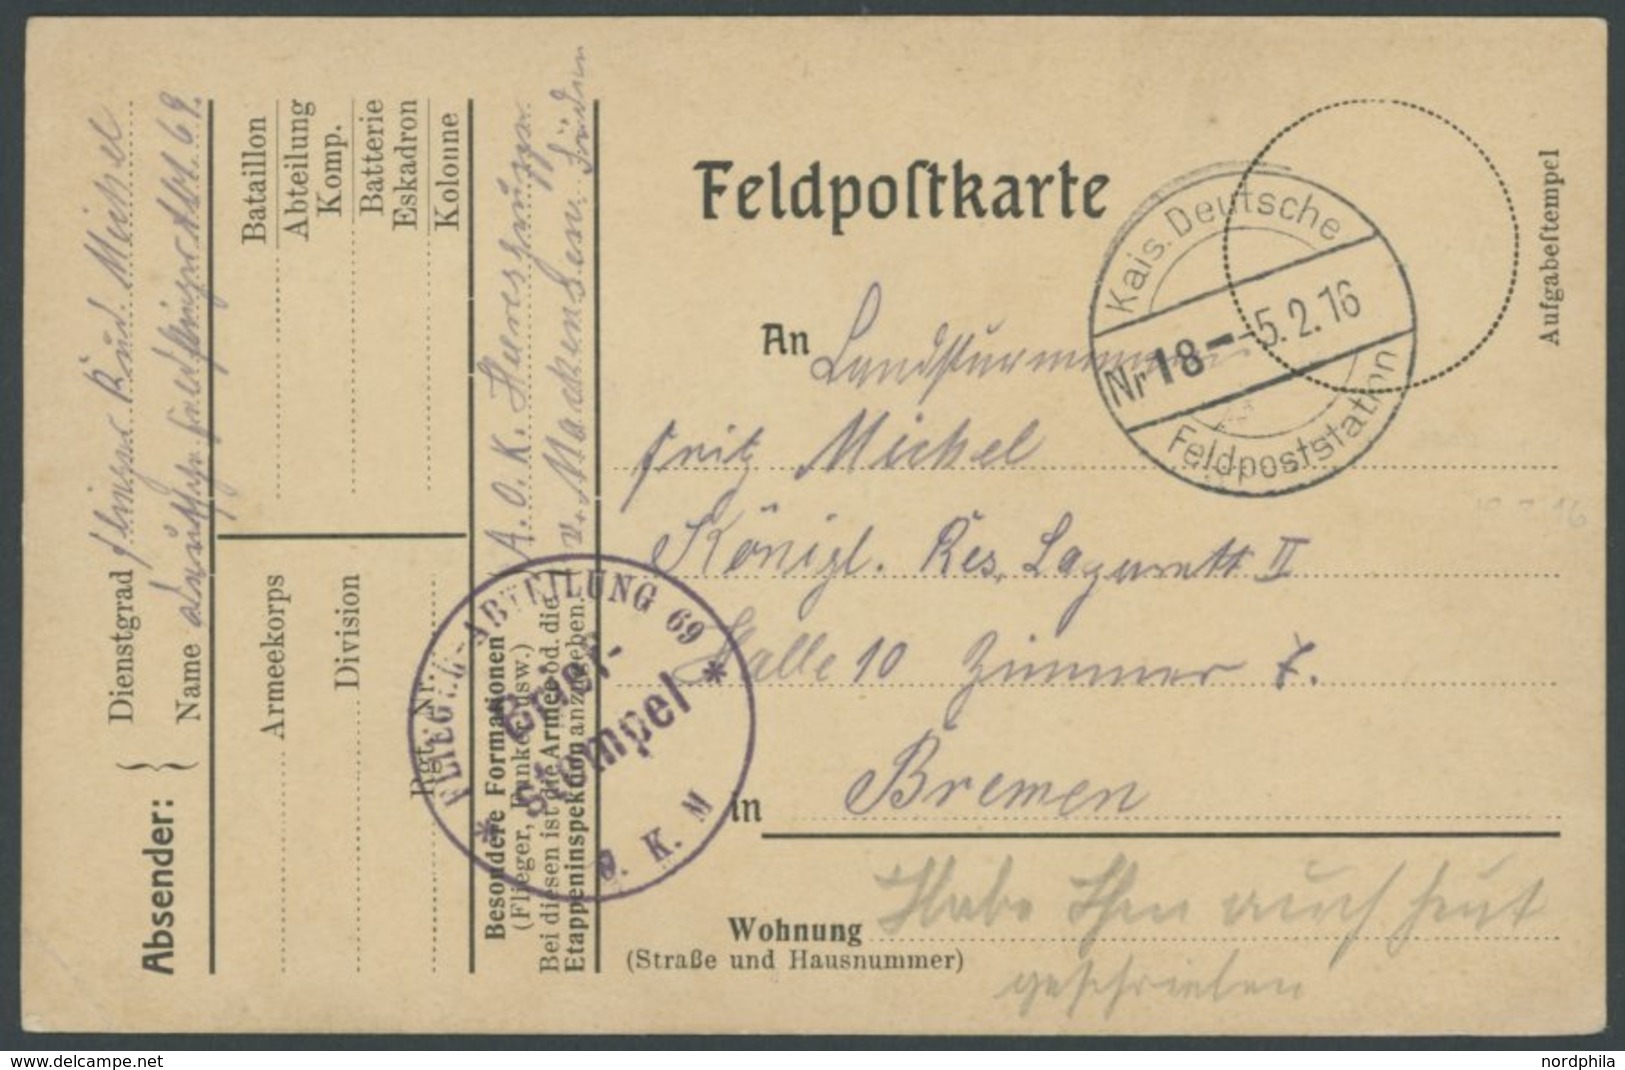 Feldpoſtkarte
Aufgabeſtempel
Kais. Deutsche
Nr 18 - -5.2.16
Feldpoststation
An Landsturmmann
Fritz Michel
Königl. Res. Lazarett II
Halle 10 Zimmer 7.
in Bremen
Wohnung
(Straße und Hausnummer)
Habe Ihen auch heut
geschrieben
Absender:
Dienstgrad Michel
Name 69.
Bataillon
Abteilung
Komp.
Batterie
Eskadron
Kolonne
Armeekorps
Division
Rgt. Nr.
Besondere Formationen
(Flieger, Funker usw.)
Bei diesen ist die Armee od. die
Etappeninspektion anzugeben.
A.O.K. Heeresgruppe
v. Mackensen Süden
FLIEGER-ABTEILUNG 69
Brief-
stempel
O. K. M
www.delcampe.net
nordphila